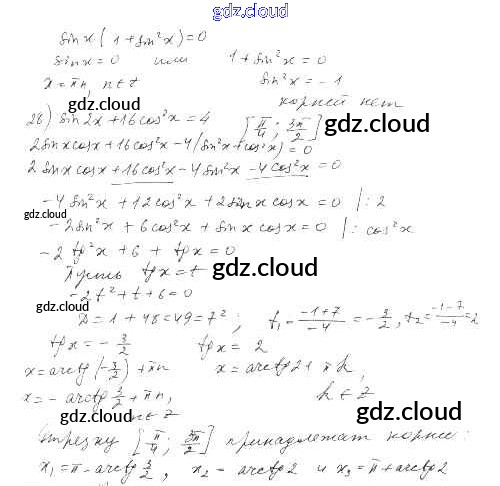 gdz.cloud
sin x (1 + sin²x) = 0
sin x = 0 или 1 + sin²x = 0
x = πn, n ∈ Z sin²x = -1
корней нет
gdz.cloud
2б) sin 2x + 16 cos²x = 4 [π/4; 3π/2] gdz.cloud
2 sin x cos x + 16 cos²x - 4(sin²x + cos²x) = 0
2 sin x cos x + 16 cos²x - 4 sin²x - 4 cos²x = 0
gdz.cloud
- 4 sin²x + 12 cos²x + 2 sin x cos x = 0 |: 2
gdz.cloud
- 2 sin²x + 6 cos²x + sin x cos x = 0 |: cos²x
- 2 tg²x + 6 + tg x = 0
Пусть tg x = t gdz.cloud
- 2t² + t + 6 = 0
gdz.cloud
D = 1 + 48 = 49 = 7²; t₁ = (-1+7)/-4 = -3/2, t₂ = (-1-7)/-4 = 2
tg x = - 3/2 tg x = 2
x = arctg(-3/2) + πn x = arctg 2 + πk,
x = - arctg 3/2 + πn, k ∈ Z
gdz.cloud
n ∈ Z gdz.cloud
Отрезку [π/4; 3π/2] принадлежат корни:
x₁ = π - arctg 3/2, x₂ - arctg 2 и x₃ = π + arctg 2
gdz.cloud